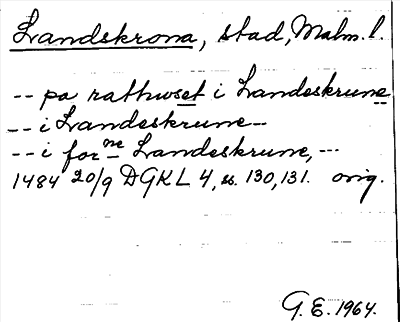 Landskrona, stad, Malm. l.
-- pa rathwset i Landeskrune
-- i Landeskrune --
-- i forne Landeskrune, --
1484 20/9 DGKL 4, s. 130, 131. orig.
G. E. 1964.